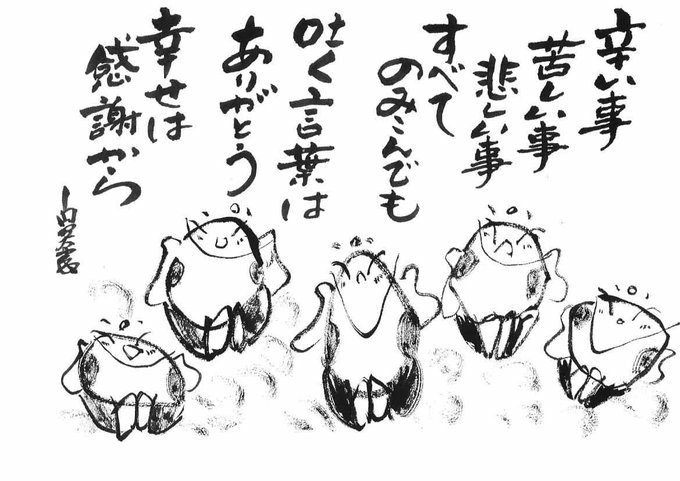 辛い事
苦しい事
悲しい事
すべて
のみこんでも
吐く言葉は
ありがとう
幸せは
感謝から